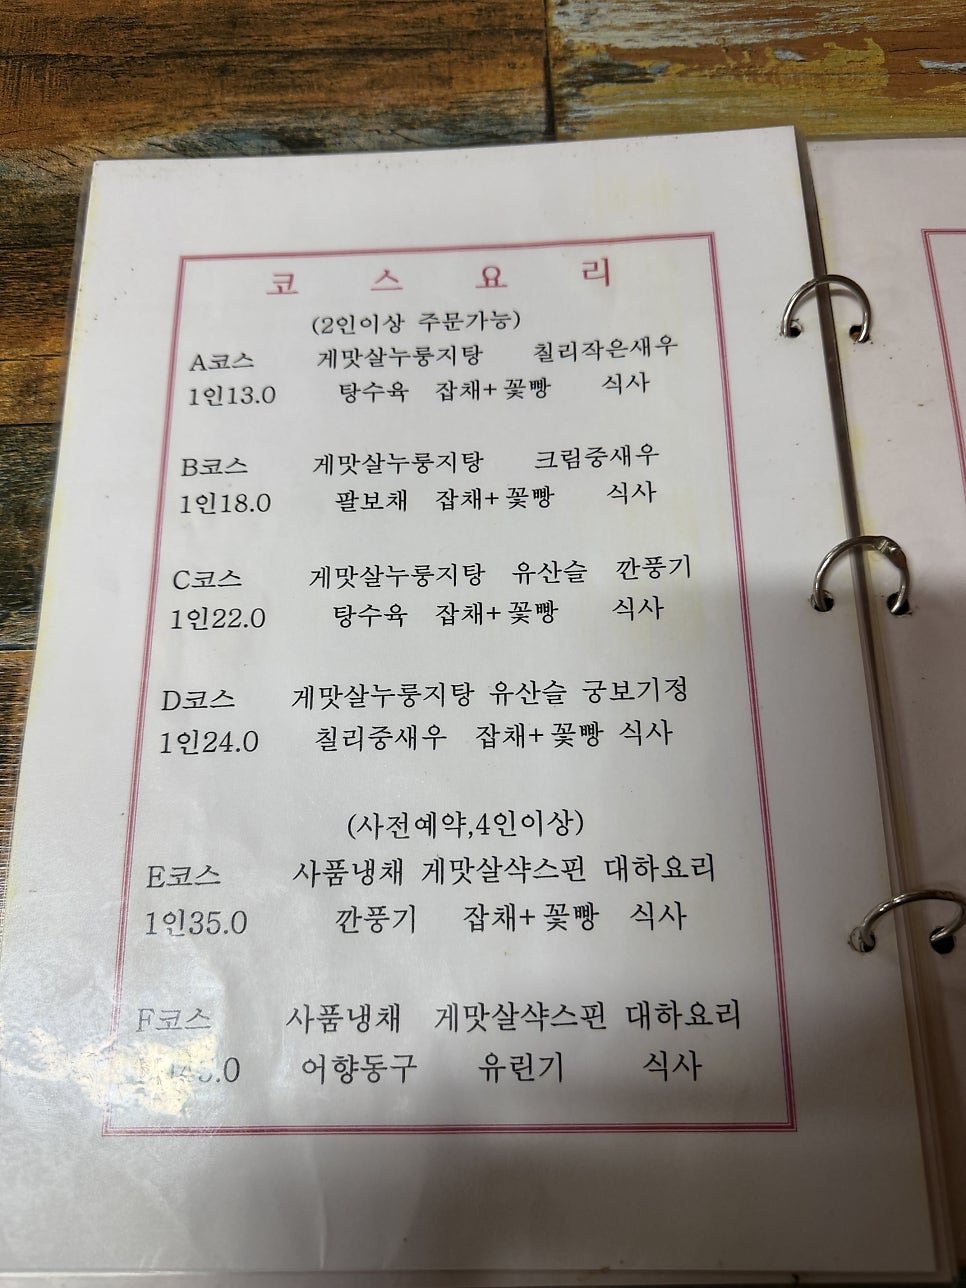 코 스 요 리
(2인이상 주문가능)
A코스 게맛살누룽지탕 칠리작은새우
1인13.0 탕수육 잡채+꽃빵 식사
B코스 게맛살누룽지탕 크림중새우
1인18.0 팔보채 잡채+꽃빵 식사
C코스 게맛살누룽지탕 유산슬 깐풍기
1인22.0 탕수육 잡채+꽃빵 식사
D코스 게맛살누룽지탕 유산슬 궁보기정
1인24.0 칠리중새우 잡채+꽃빵 식사
(사전예약,4인이상)
E코스 사품냉채 게맛살샥스핀 대하요리
1인35.0 깐풍기 잡채+꽃빵 식사
F코스 사품냉채 게맛살샥스핀 대하요리
어향동구 유린기 식사